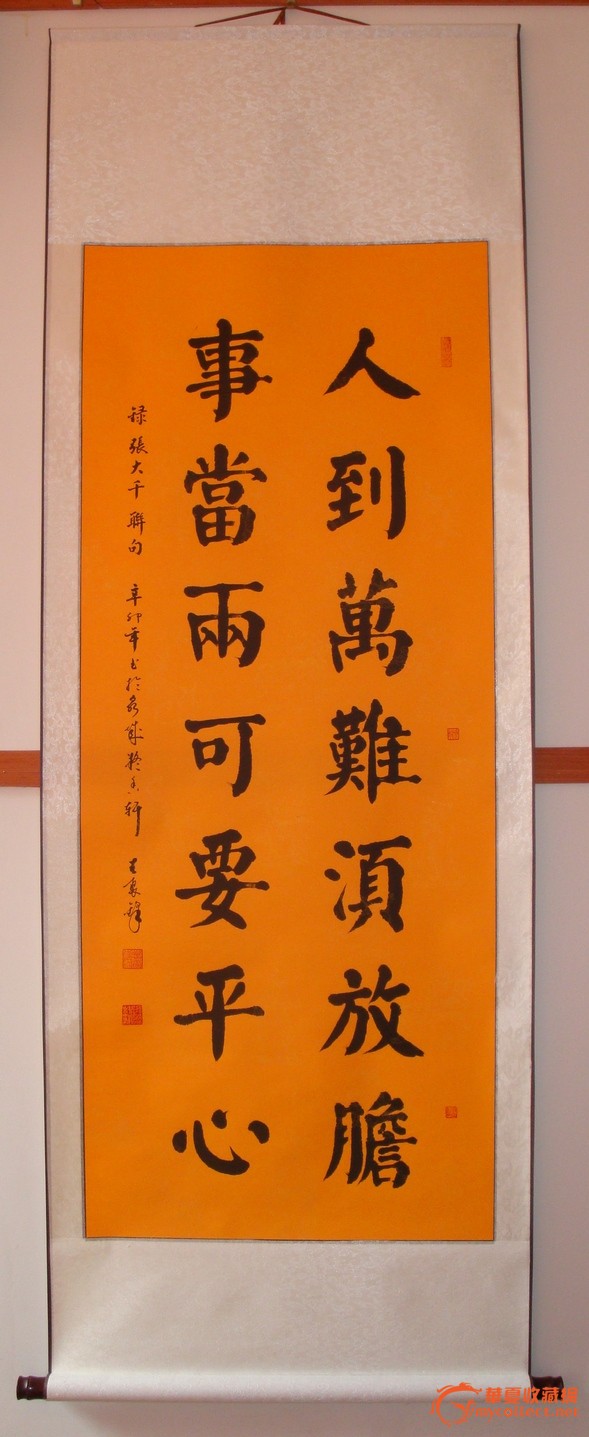 人到萬難湏放膽
事當兩可要平心
録張大千聯句 辛卯年书於
華夏收藏網
mycollect.net